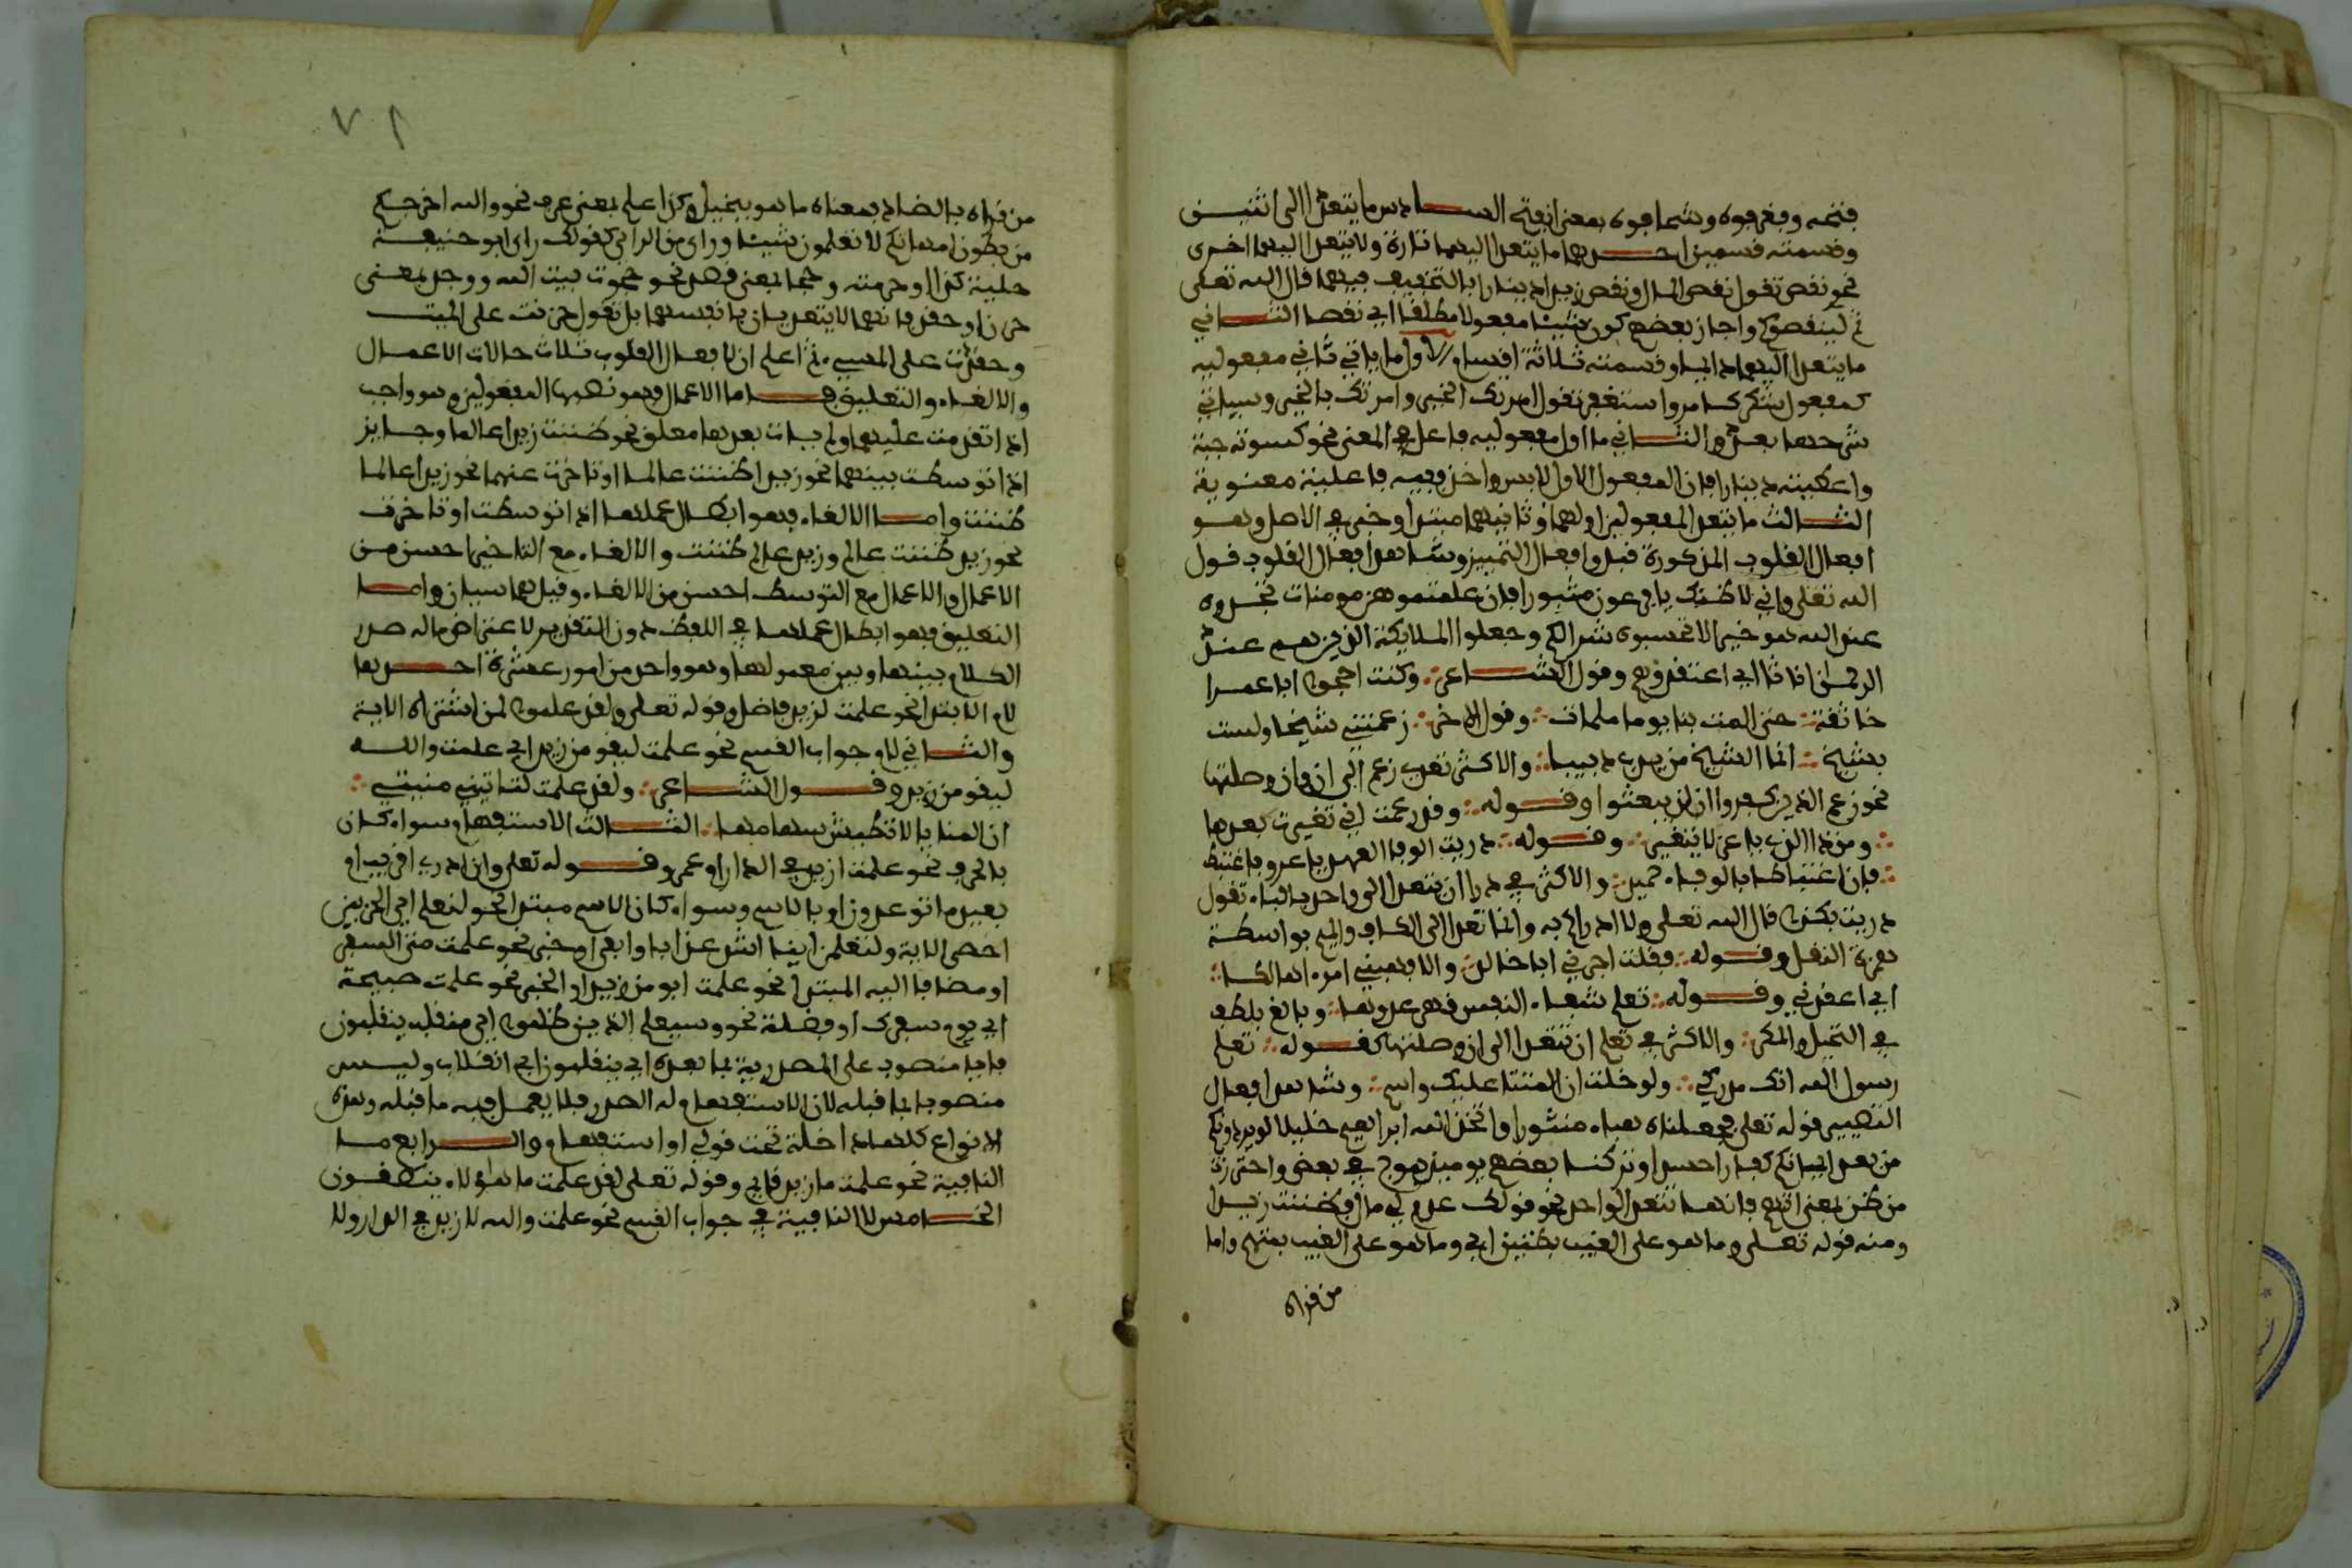 فتحه وفغر فوه وشحا فوه بمعنى انفتح السادس ما يتعدى الى اثنين
وقسمته قسمين احدهما ما يتعدى اليهما تارة ولا يتعدى اليهما اخرى
نحو نقص تقول نقص المال ونقص زيدا دينارا بالتخفيف فيهما قال الله تعلى
ثم لم ينقصوكم واجاز بعضهم كون شيئا مفعولا مطلقا اي نقصا الثاني
ما يتعدى اليهما دايما وقسمته ثلاثة اقسام الاول ما ياتي ثاني مفعوليه
كمفعول شكر كامر واستغفر تقول امرتك الخير وامرتك بالخير وسياتي
شرحهما بعد والثاني ما اول مفعوليه فاعل في المعنى نحو كسوته جبة
واعطيته دينارا فان المفعول الاول لابس واخذ ففيه فاعلية معنوية
الثالث ما يتعدى لمفعولين اولهما وثانيهما مبتدا وخبر في الاصل وهو
افعال القلوب المذكورة قبل وافعال التصيير وشاهد افعال القلوب قول
الله تعلى واني لاظنك يا فرعون مثبورا فان علمتموهن مومنات تجدوه
عند الله هو خيرا لا تحسبوه شرا لكم وجعلوا الملايكة الذين هم عند
الرحمن اناثا اي اعتقدوهم وقول الشاعر وكنت احجو ابا عمرا
اخا ثقة حتى المت بنا يوما ملمات وقول الاخر زعمتني شيخا ولست
بشيخ انما الشيخ من يدب دبيبا والاكثر تعدي زعم الى ان وان وصلتها
نحو زعم الذين كفروا ان لن يبعثوا وقوله وقد زعمت اني تغيرت بعدها
ومن ذا الذي يا عز لا يتغير وقوله دريت الوفي العهد يا عرو فاغتبط
فان اغتباطا بالوفاء حميد والاكثر في درا ان يتعدى الى واحد بالباء تقول
دريت بكذا قال الله تعلى ولا ادراكم به وانما تعدى الى الكاف والميم بواسطة
همزة النقل وقوله فقلت اجرني ابا خالد والا فهبني امرءا هالكا
اي اعتقدني وقوله تعلم شفاء النفس قهر عدوها فبالغ بلطف
في التحيل والمكر والاكثر في تعلم ان يتعدى الى ان وصلتها كقوله تعلم
رسول الله انك مدركي ولو خلت ان المنتا عليك واس وشاهد افعال
التصيير قوله تعلى فجعلناه هباء منثورا واتخذ الله ابراهيم خليلا لو يردونكم
من بعد ايمانكم كفارا حسدا وتركنا بعضهم يوميذ يموج في بعض واحترزت
من ظن لمعنى اتهم فانها تتعدى لواحد نحو قولك عدم لي مال فظننت زيدا
ومنه قوله تعلى وما هو على الغيب بظنين اي وما هو على الغيب بمتهم واما
من قراه
من قراه بالضاد فمعناه ما هو ببخيل وكذا علم لمعنى عرف نحو والله اخرجكم
من بطون امهاتكم لا تعلمون شيئا ورأى من الراي كقولك راى ابو حنيفة
حلية كذا او حرمته وحجا لمعنى قصد نحو حجوت بيت الله ووجد لمعنى
حزن او حقد فانهما لا يتعديان بانفسهما بل تقول حزنت على الميت
وحقدت على المسيء ثم اعلم ان لافعال القلوب ثلاث حالات الاعمال
والالغاء والتعليق فاما الاعمال فهو نصبها المفعولين وهو واجب
اذا تقدمت عليهما ولم يات بعدها معلق نحو ظننت زيدا عالما وجايز
اذا توسطت بينهما نحو زيدا ظننت عالما او تاخرت عنهما نحو زيدا عالما
ظننت واما الالغاء فهو ابطال عملها اذا توسطت او تاخرت
نحو زيد ظننت عالم وزيد عالم ظننت والالغاء مع التاخير احسن من
الاعمال والاعمال مع التوسط احسن من الالغاء وقيل هما سيان واما
التعليق فهو ابطال عملها في اللفظ دون التقدير لاعتراض ماله صدر
الكلام بينها وبين معمولها وهو واحد من امور عشرة احدها
لام الابتدا نحو علمت لزيد فاضل وقوله تعلى ولقد علموا لمن اشتراه الاية
والثاني لام جواب القسم نحو علمت ليقومن زيد اي علمت والله
ليقومن زيد وقول الشاعر ولقد علمت لتاتين منيتي
ان المنايا لا تطيش سهامها الثالث الاستفهام سواء كان
بالحرف نحو علمت ازيد في الدار او عمرو وقوله تعلى وان ادري اقريب ام
بعيد ما توعدون او بالاسم وسواء كان الاسم مبتدا نحو لنعلم اي الحزبين
احصى الاية ولتعلمن اينا اشد عذابا وابقى او خبر نحو علمت متى السفر
او مضافا اليه المبتدا نحو علمت ابو من زيد او الخبر نحو علمت صبيحة
اي يوم سفرك او فضلة نحو وسيعلم الذين ظلموا اي منقلب ينقلبون
فايا منصوب على المصدرية بما بعده اي ينقلبون اي انقلاب وليس
منصوبا بما قبله لان الاستفهام له الصدر فلا يعمل فيه ما قبله وهذه
الانواع كلها داخلة تحت قولي او استفهام والرابع ما
النافية نحو علمت ما زيد قايم وقوله تعلى لقد علمت ما هؤلاء ينطقون
الخامس لا النافية في جواب القسم نحو علمت والله لا زيد في الدار ولا